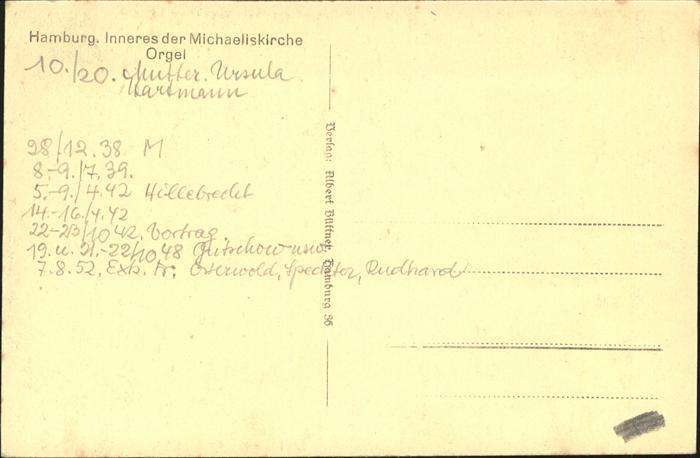 Hamburg. Inneres der Michaeliskirche
Orgel
10./20. Mutter. Ursula
Hartmann
28/12.38 M
8.-9./7.39.
5.-9./4.42 Hillebrecht
14.-16./4.42
22-23/10 42. Vortrag
19. u. 21.-22/10 48 Gutschow usw.
7.8.52, Exb. Osterwold, Spechter, Rudhard
Verlag: Albert Büttner, Hamburg 36